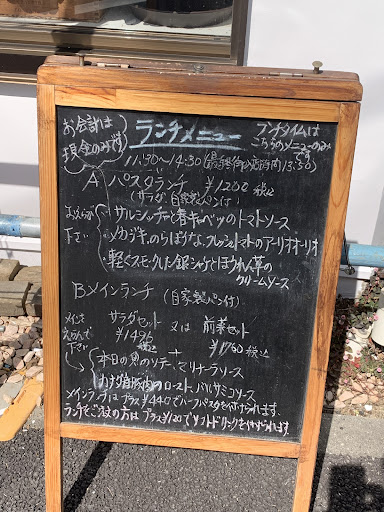 お会計は
現金のみです
ランチメニュー
ランチタイムは
こちらのメニューのみ
です
11:30〜14:30(最終御入店時間13:50)
A パスタランチ ¥1200 税込
(サラダ、自家製パン付)
お選び
下さい
サルシッチャと春キャベツのトマトソース
メカジキ、のらぼうな、フレッシュトマトのアーリオオーリオ
軽くスモークした銀シャケとほうれん草の
クリームソース
B メインランチ (自家製パン付)
メインを
えらんで
下さい
サラダセット 又は 前菜セット
¥1495 税込 ¥1760 税込
本日の魚のソテー、マリナーラソース
カナダ産豚肉のロースト バルサミコソース
メインランチはプラス¥440でハーフパスタを付けられます。
ランチをご注文の方はプラス¥120でソフトドリンクを付けられます。